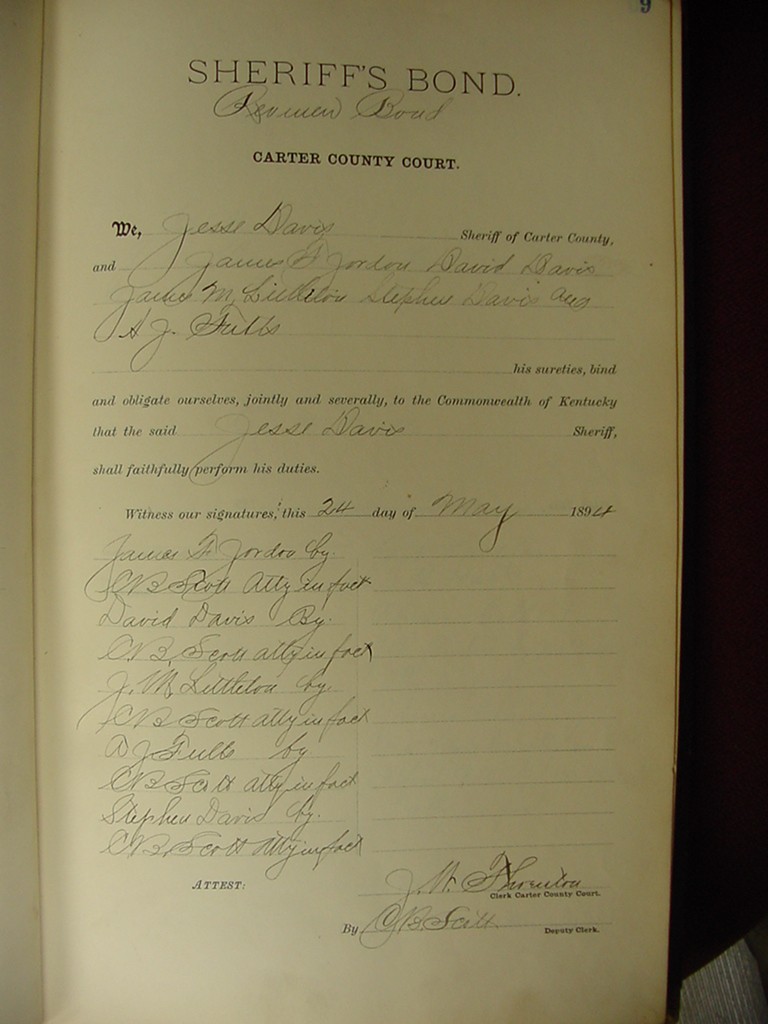 9
SHERIFF'S BOND.
Revenue Bond
CARTER COUNTY COURT.
We, Jesse Davis Sheriff of Carter County,
and James F Jordon David Davis
James M, Littleton Stephen Davis and
A J. Fults
his sureties, bind
and obligate ourselves, jointly and severally, to the Commonwealth of Kentucky
that the said Jesse Davis Sheriff,
shall faithfully perform his duties.
Witness our signatures, this 24 day of May 1894
James F. Jordon by
C B Scott Atty in fact
David Davis By.
C. B. Scott atty in fact
J. M, Littleton by
C B Scott atty in fact
A J Fults by
C B Scott atty in fact
Stephen Davis by.
C. B. Scott atty in fact
ATTEST: J. W. Thornton
Clerk Carter County Court.
By C. B. Scott
Deputy Clerk.